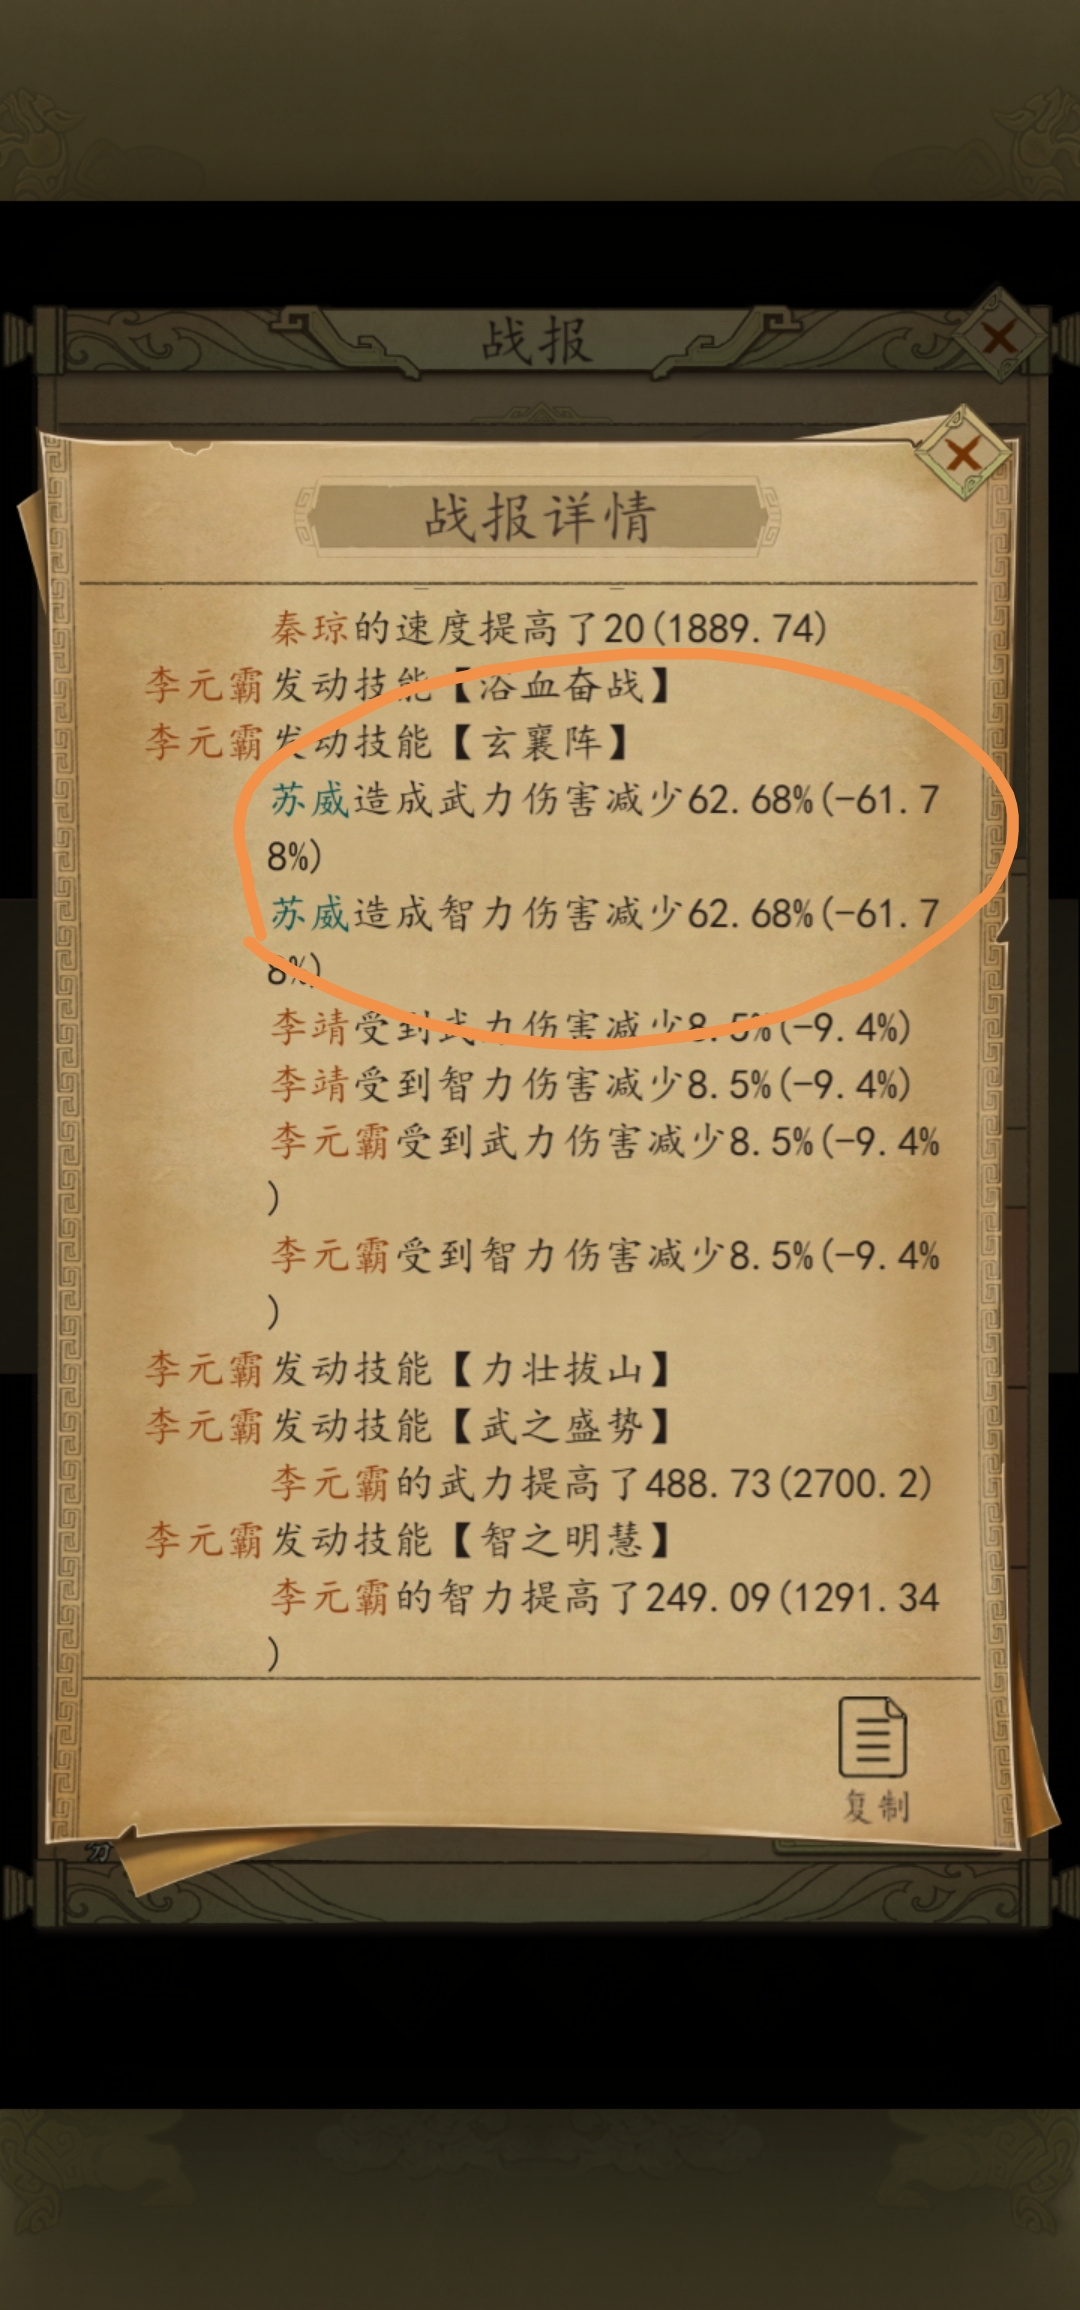 战报
战报详情
秦琼的速度提高了20(1889.74)
李元霸发动技能【浴血奋战】
李元霸发动技能【玄襄阵】
苏威造成武力伤害减少62.68%(-61.7
8%)
苏威造成智力伤害减少62.68%(-61.7
8%)
李靖受到武力伤害减少8.5%(-9.4%)
李靖受到智力伤害减少8.5%(-9.4%)
李元霸受到武力伤害减少8.5%(-9.4%
)
李元霸受到智力伤害减少8.5%(-9.4%
)
李元霸发动技能【力壮拔山】
李元霸发动技能【武之盛势】
李元霸的武力提高了488.73(2700.2)
李元霸发动技能【智之明慧】
李元霸的智力提高了249.09(1291.34
)
复制